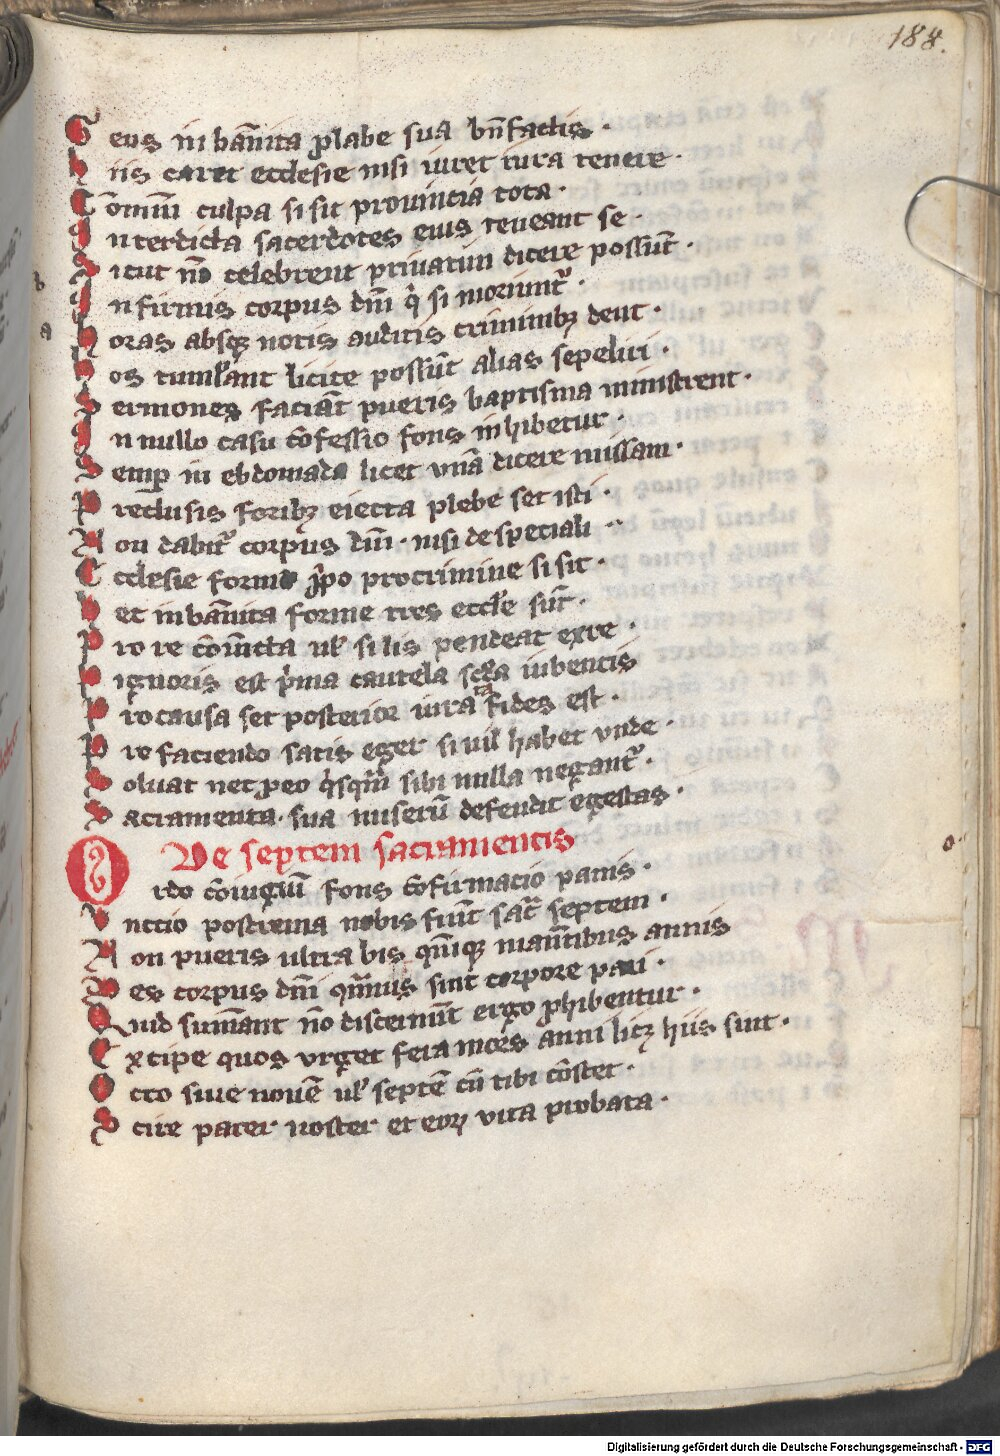 188.
C eus in bāīta plabe sua bn̄factis ·
H iis caret ecclesie nisi iuret iura tenere ·
C om̄uni culpa si sit prouincia tota ·
I nterdicta sacerdotes eius teneant se ·
S icut nō celebrent priuatim dicere possūt ·
b I nfirmis corpus dn̄i si moriunt᷑ ·
a H oras absqꝫ notis auditis criminibꝫ dent ·
H os licite possūt alias sepeliri ·
S ermones faciāt pueris baptisma ministrent ·
I n nullo casu cōfessio fons inhibetur ·
S emꝑ in ebdomada licet vnā dicere missam ·
P reclusis foribꝫ eiecta plebe set isti ·
N on dabit᷑ corpus dn̄i · nisi de speciali ·
E cclesie forma pro crimine si sit ·
forme tres eccl̄e sūt ·
P ro re cōuicta ul̓ si lis pendeat ex re ·
P ignoris est p̄ma cautela iubentis
P ro causa set posterior iurata fides est ·
P ro faciendo satis eger si nil habet vnde ·
S oluat nec ꝑ eo sibi nulla negant᷑ ·
S acramenta · sua miserū defendit egestas ·
De septem sacramentis
O rdo cōiugiū fons cōfirmacio panis ·
V nctio postrema nobis fiūt sac̄ septem ·
N on pueris ultra bis qn̄iqꝫ manētibus annis
D es corpus dn̄i qm̄uis sint corpore pari ·
Q uid sumant nō discernūt ergo ꝓhibentur ·
E xcipe quos vrget fera anni licꝫ hiis sint ·
O cto siue nouē ul̓ septē cū tibi cōstet ·
S cire pater noster et eoꝝ vita probata ·
o
Digitalisierung gefördert durch die Deutsche Forschungsgemeinschaft - DFG